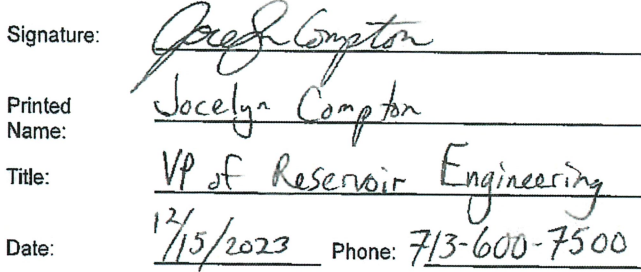 Signature: Jocelyn Compton
Printed
Name: Jocelyn Compton
Title: VP of Reservoir Engineering
Date: 12/15/2023 Phone: 713-600-7500